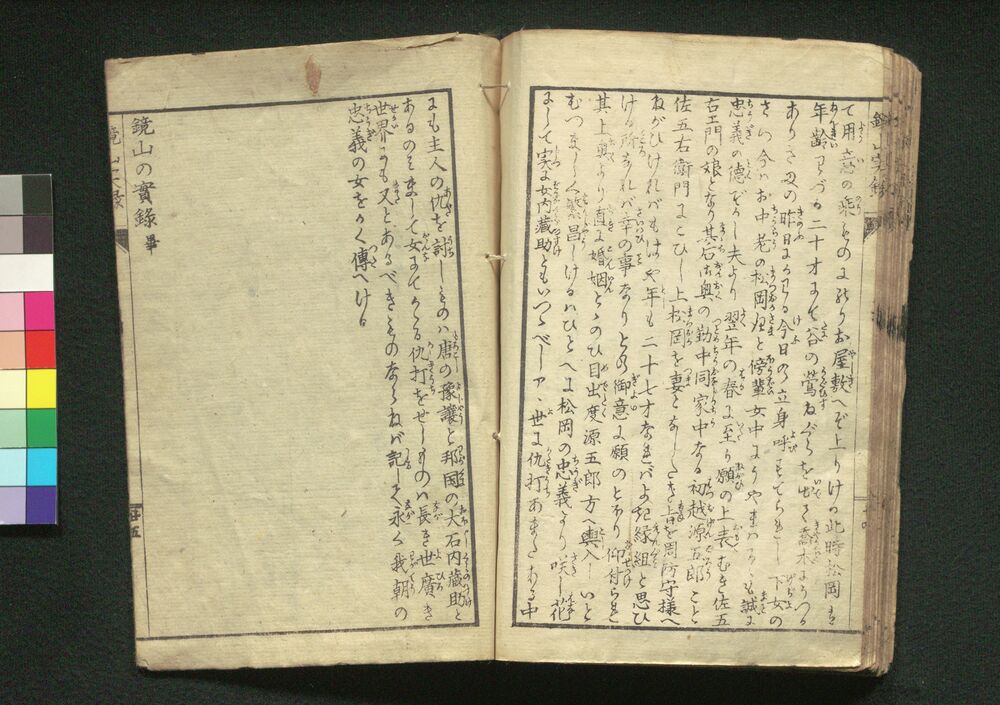 て用意の乗ものにのりお屋敷へぞ上りける此時松岡は
年齢わづか二十才にして谷の鶯ねぐらを出て喬木にうつる
ありさま昨日にかはる今日の立身呼もてらるゝ下女の
さつ今はお中老の松岡殿と傍輩女中にうやまはるゝも誠に
忠義の徳ぞかし夫より翌年の春に至り願の上表むき佐五
右エ門の娘となり其名は奥の勤中同家中なる初越源五郎こと
佐五右衛門にこひし上松岡を妻となしたき旨を周防守様へ
ねがひけれバもはや年も二十七才なれバよき縁組と思ひ
ける所なれバ幸の事なりとの御意に願のとおり仰付られ
其上奥より直に婚姻とゝのひ目出度源五郎方へ輿入しいと
むつましく繁昌しけるハひとへに松岡の忠義より咲し花
にして実に女内蔵助ともいつゝべしア丶世に仇打あまたある中
にも主人の仇を討しものハ唐の豫讓と邦国の大石内蔵助と
あるのミまして女にてかゝる仇打をせしものハ長き世廣き
世界にも又とあるべきものならねバ記して永く我朝の
忠義の女をかく傳へける
鏡山の實錄 畢
廿五